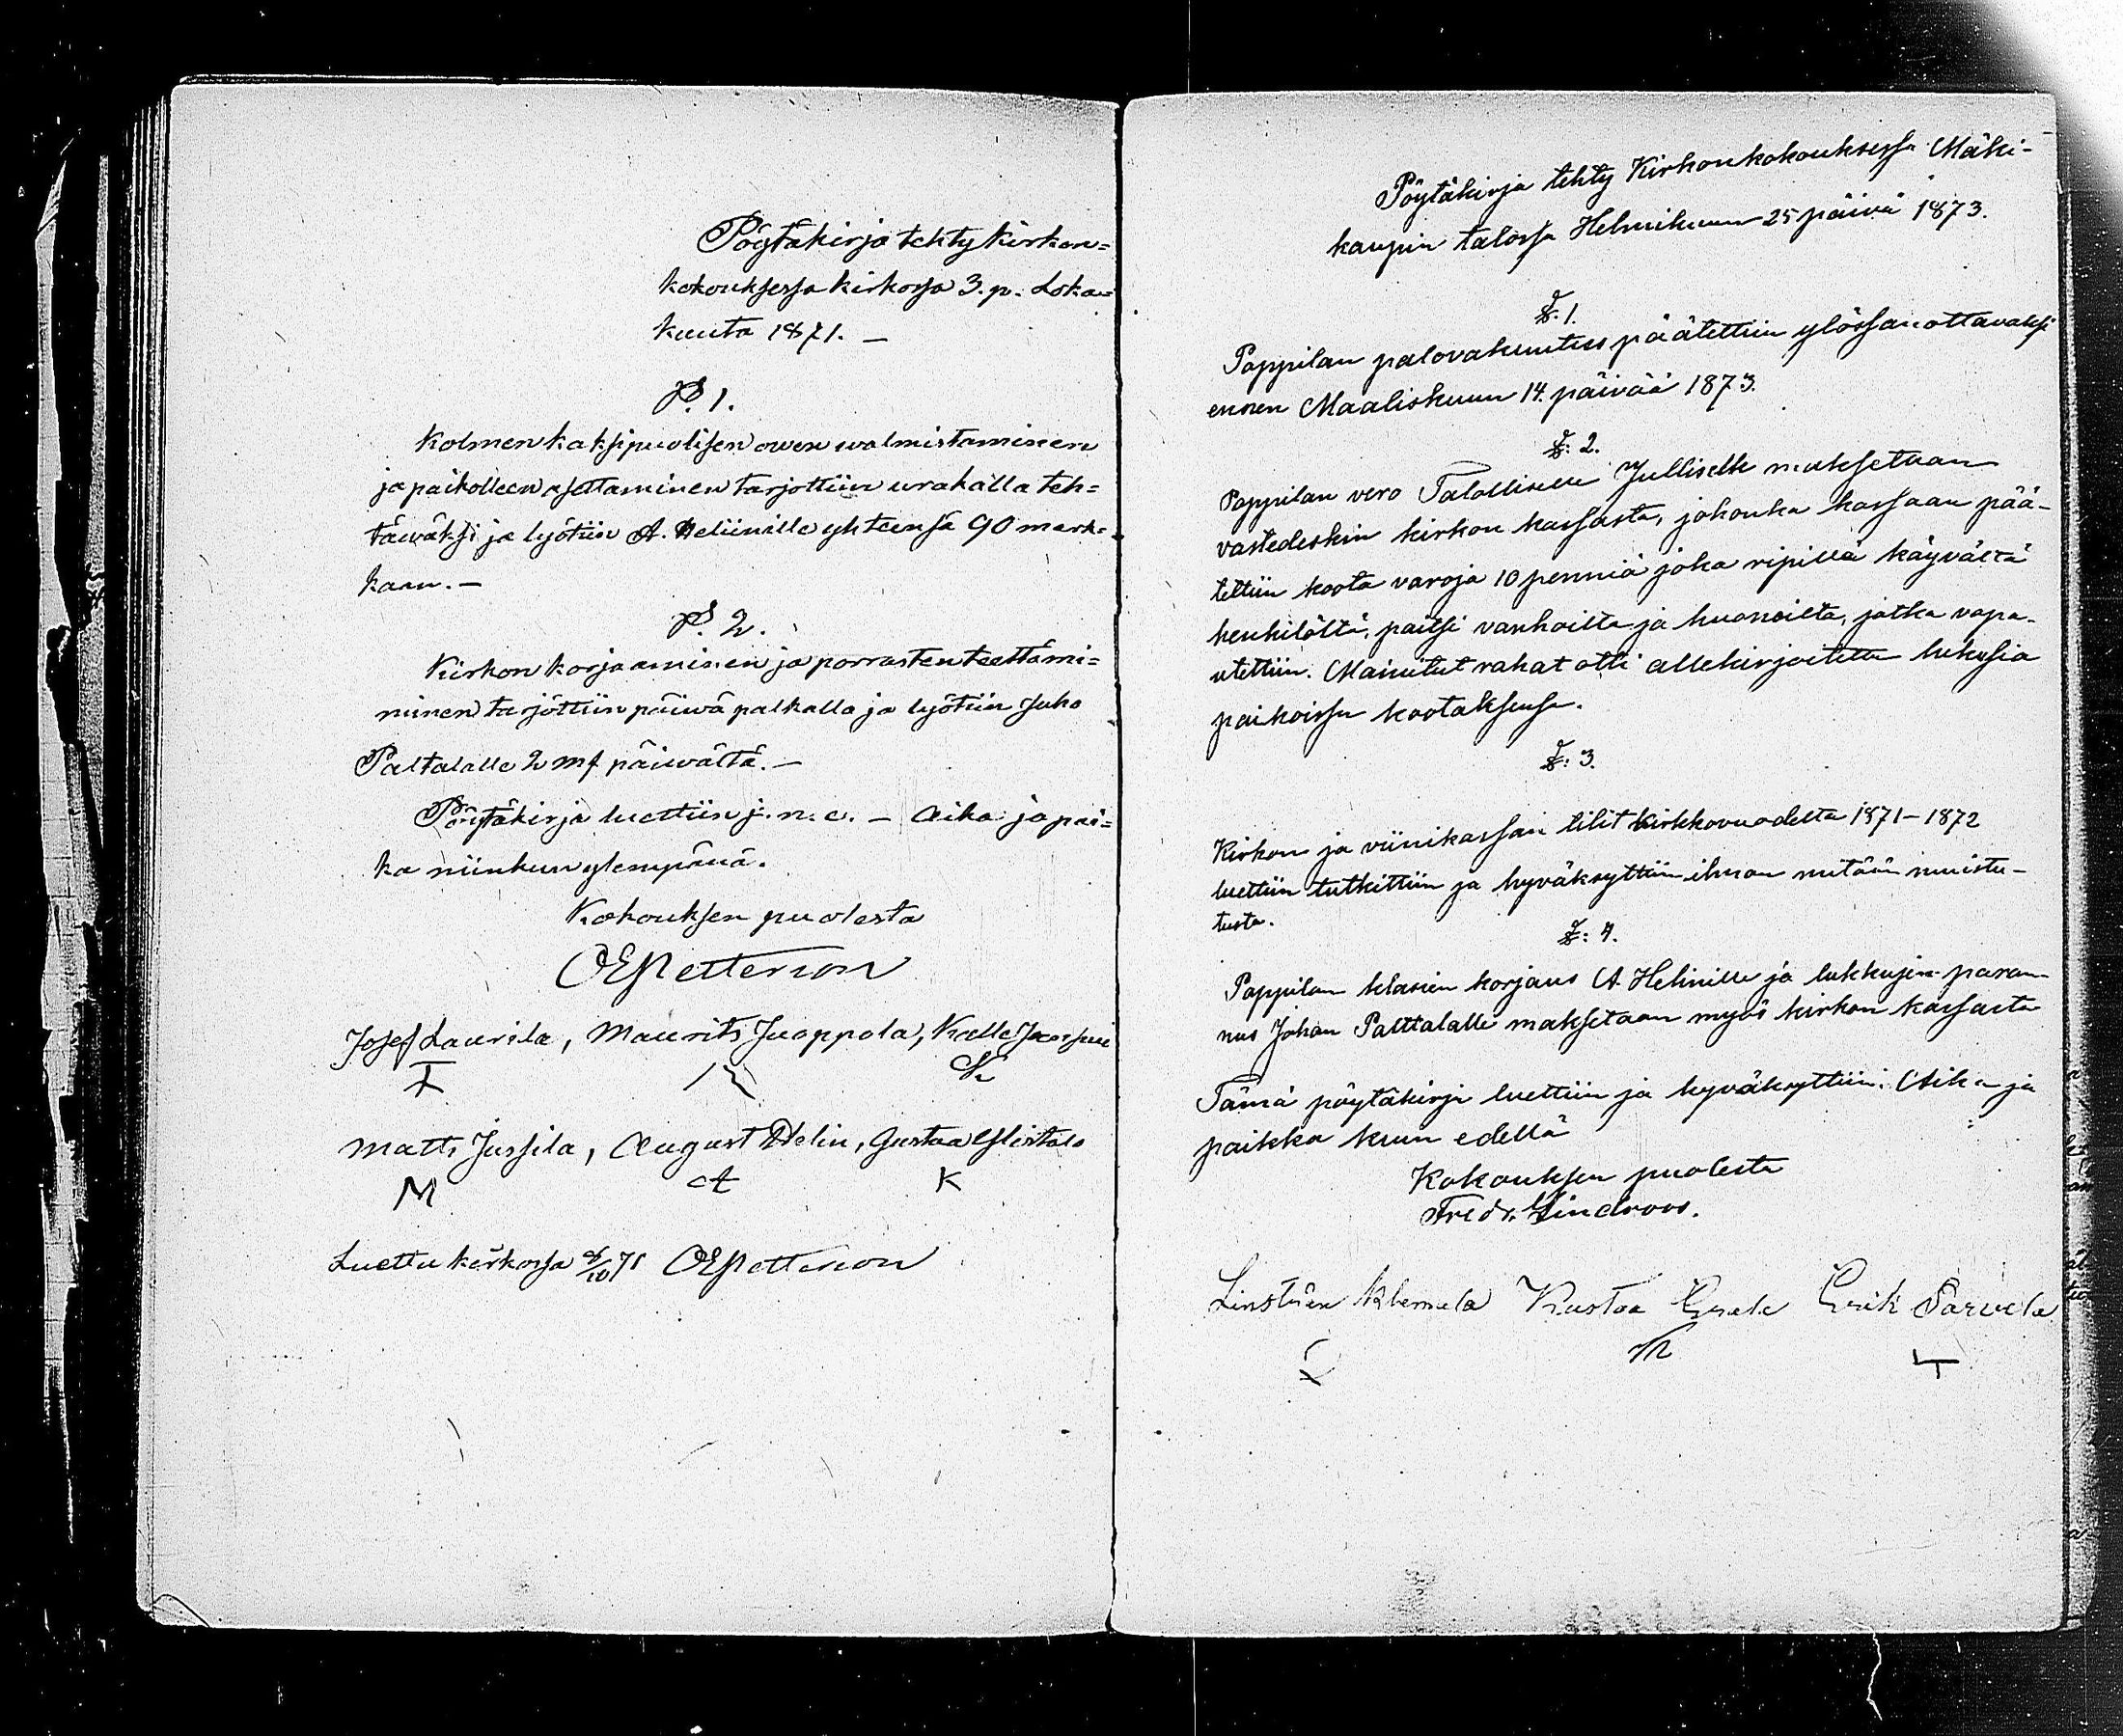 Pöytäkirja tehty kirkon=
kokouksessa kirkossa 3. p. Loka=
kuuta 1871. —
§. 1.
Kolmen kaksipuolisen owen walmistaminen
ja paikolleen asettaminen tarjottiin urakalla teh=
täwäksi ja lyötiin A. Heliinille yhteensä 90 mark=
kaan. —
§. 2.
Kirkon korjaaminen ja porrasten teettämi=
ninen tarjottiin päiwä palkalla ja lyötiin Juho
Paltalalle 2 mf päiwältä. —
Pöytäkirja luettiin j. n. e. — Aika ja pai=
ka niinkun ylempänä.
Kokouksen puolesta
OEPetterson
Josef Laurila, Maurits Juoppola, Kalle
I
K
Matts Jussila, August Helin, Gustaa Ylistalo
M A K
Luettu kirkossa 8/10 71 OEPetterson
Pöytäkirja tehty Kirkonkokouksessa Mäki-
kaupin talossa Helmikuun 25 päivä 1873.
§. 1.
Pappilan palovakuutus päätettiin ylössanottavaksi
ennen Maaliskuun 14. päivää 1873.
§: 2.
Pappilan vero Talolliselle Julliselle maksetaan
vastedeskin kirkon kassasta, johonka kassaan pää-
tettiin koota varoja 10 penniä joka ripillä käyvältä
henkilöltä, paitsi vanhoilta ja huonoilta, jotka vapa-
utettiin. Mainitut rahat otti allekirjoitettu lukusia
paikoissa kootaksensa.
§: 3.
Kirkon ja viinikassan tilit kirkkovuodelta 1871–1872
luettiin tutkittiin ja hyväksyttiin ilman mitään muistu-
tusta.
§: 4.
Pappilan klasien korjaus A. Helinille ja lukkujen paran-
nus Johan Palttalalle maksetaan myös kirkon kassasta
Tämä pöytäkirja luettiin ja hyväksyttiin. Aika ja
paikka kuin edellä
Kokouksen puolesta
Fredr. Lindroos.
Klemola Kustaa Erik Sarvela